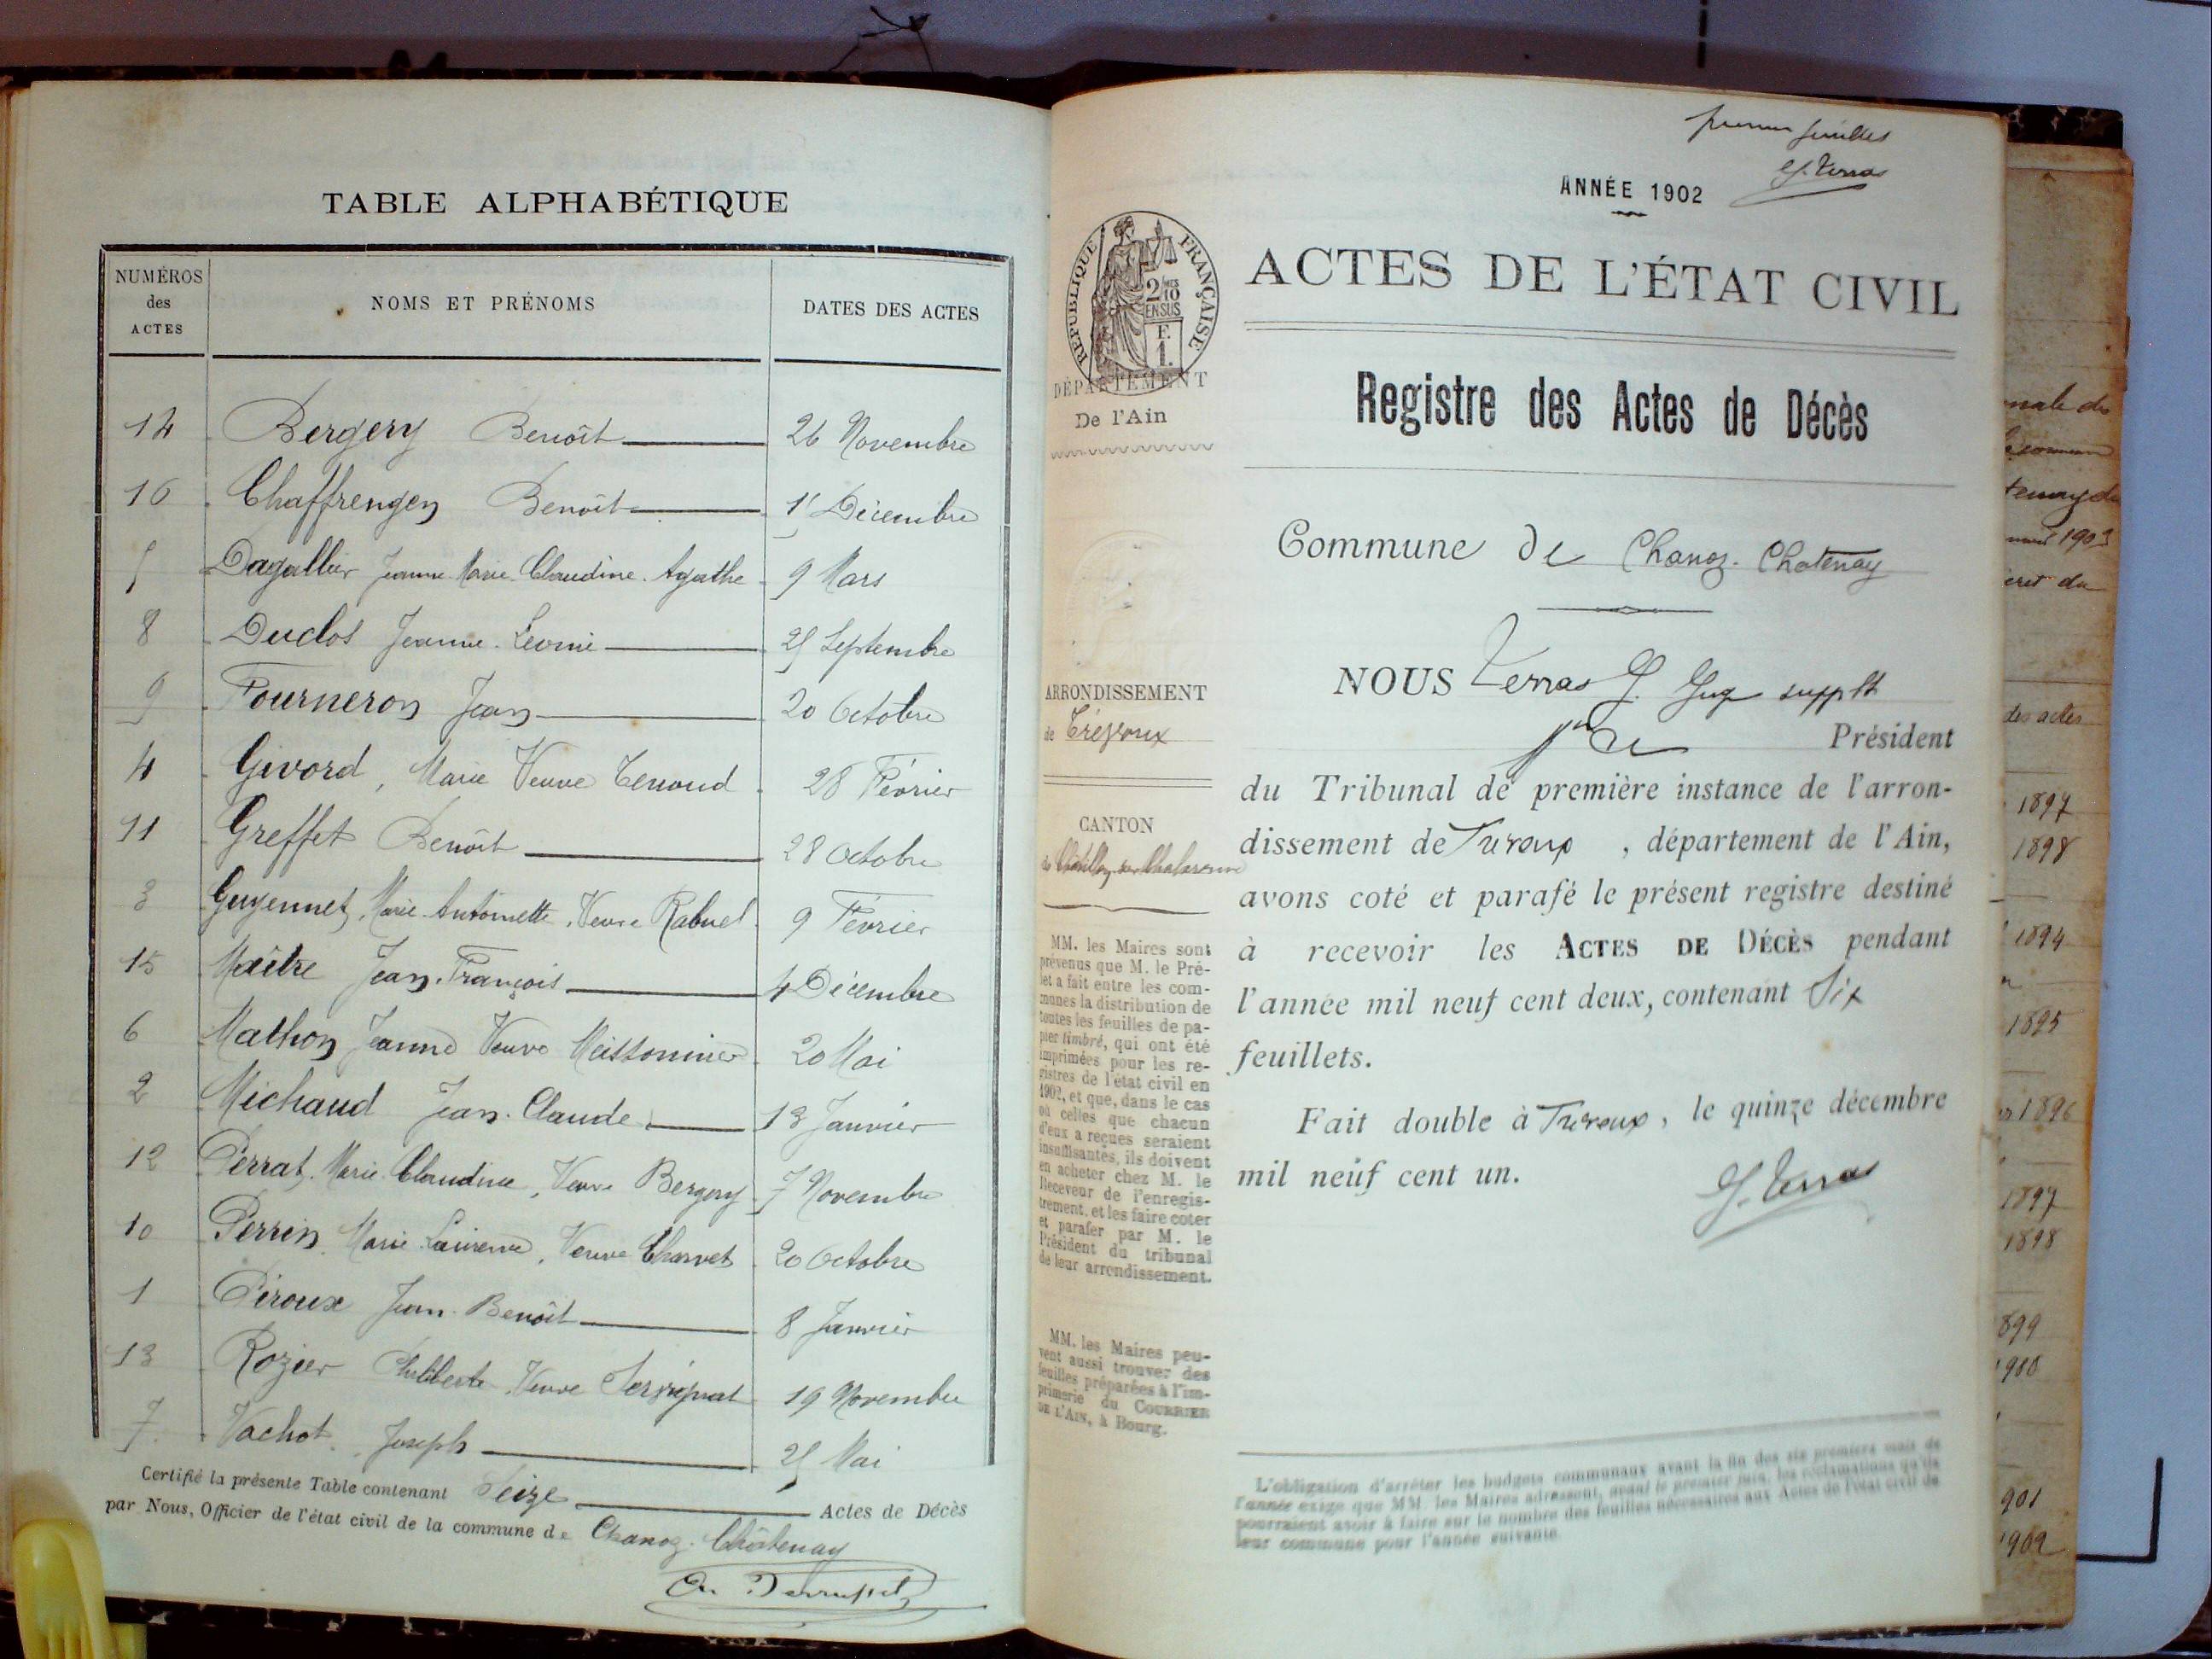 TABLE ALPHABÉTIQUE
NUMÉROS des ACTES NOMS ET PRÉNOMS DATES DES ACTES
14 Bergery Benoît 26 Novembre
16 Chaffrengey Benoît Décembre
5 Dagallier Jeanne Marie Claudine Agathe 9 Mars
8 Duclos Jeanne Léonie 25 Septembre
9 Fourneron Jean 20 Octobre
4 Givord, Marie Veuve Tenoud 28 Février
11 Greffet Benoît 28 Octobre
3 Guyennet, Marie Antoinette, Veuve Rabuel 9 Février
15 Maître Jean François 4 Décembre
6 Mathon Jeanne Veuve Meissonnier 20 Mai
2 Michaud Jean Claude 13 Janvier
12 Perrat Marie Claudine, Veuve Bergery 7 Novembre
10 Perrin Marie Laurence, Veuve Charvet 20 Octobre
1 Piroux Jean Benoît 8 Janvier
13 Rozier Philiberte Veuve Servignat 19 Novembre
7 Vachot Joseph 25 Mai
Certifié la présente Table contenant Seize Actes de Décès
par Nous, Officier de l'état civil de la commune de Chanoz-Châtenay
feuillet
G. Terras
ANNÉE 1902
RÉPUBLIQUE FRANÇAISE
2/10 EN SUS
F. 1.
DÉPARTEMENT
De l'Ain
ACTES DE L'ÉTAT CIVIL
Registre des Actes de Décès
Commune de Chanoz-Chatenay
ARRONDISSEMENT
de Trévoux
CANTON
de Châtillon-sur-Chalaronne
MM. les Maires sont
prévenus que M. le Pré-
fet a fait entre les com-
munes la distribution de
toutes les feuilles de pa-
pier timbré, qui ont été
imprimées pour les re-
gistres de l'état civil en
1902, et que, dans le cas
où celles que chacun
d'eux a reçues seraient
insuffisantes, ils doivent
en acheter chez M. le
Receveur de l'enregis-
trement, et les faire coter
et parafer par M. le
Président du tribunal
de leur arrondissement.
MM. les Maires peu-
vent aussi trouver des
feuilles préparées à l'im-
primerie du COURRIER
DE L'AIN, à Bourg.
NOUS Terras G. Juge suppt
Président
du Tribunal de première instance de l'arron-
dissement de Trévoux, département de l'Ain,
avons coté et parafé le présent registre destiné
à recevoir les ACTES DE DÉCÈS pendant
l'année mil neuf cent deux, contenant Six
feuillets.
Fait double à Trévoux, le quinze décembre
mil neuf cent un.
G. Terras
L'obligation d'arrêter les budgets communaux avant la fin des six premiers mois de
l'année exige que MM. les Maires adressent, avant le premier juin, les réclamations qu'ils
pourraient avoir à faire sur le nombre des feuilles nécessaires aux Actes de l'état civil de
leur commune pour l'année suivante.
1903
des actes
1897
1898
1894
1895
1896
1897
1898
899
900
901
1902